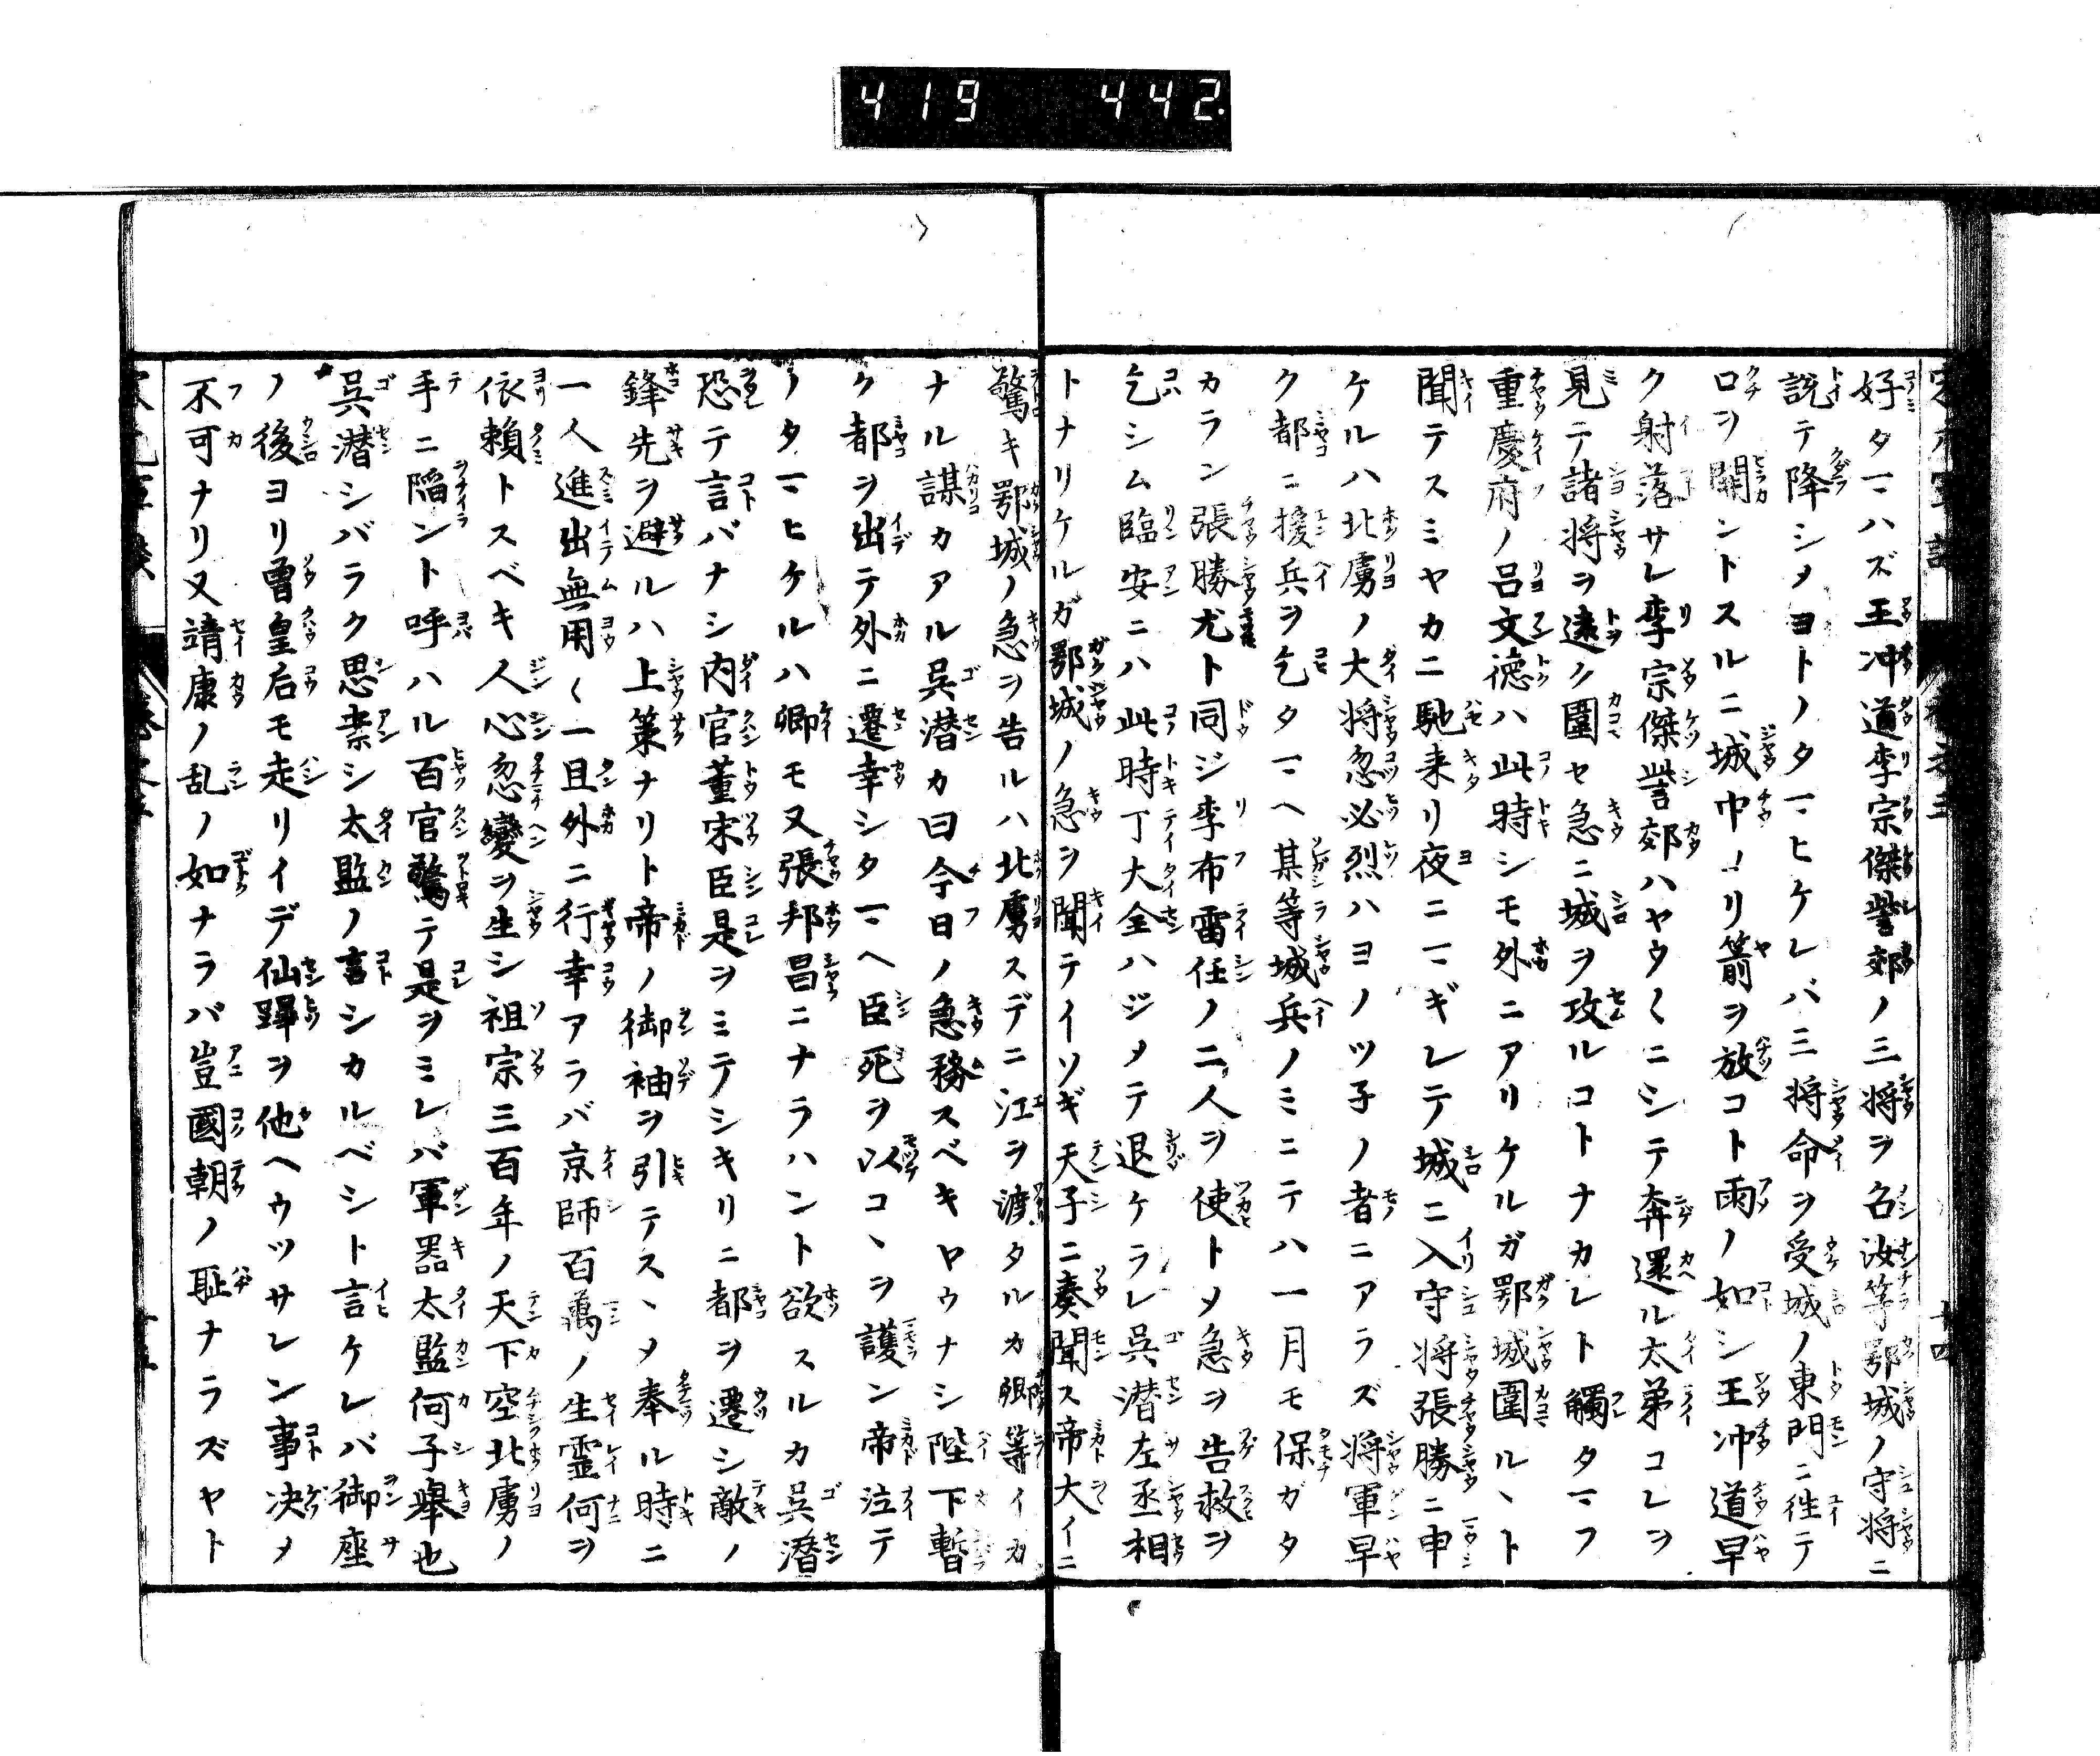 419 442.
好タマハズ王冲道李宗傑訾郊ノ三将ヲ名汝等鄂城ノ守将ニ
説テ降シメヨトノタマヒケレバ三将命ヲ受城ノ東門ニ徃テ
口ヲ開ントスルニ城中ヨリ箭ヲ放コト雨ノ如シ王冲道早
ク射落サレ李宗傑訾郊ハヤウ〱ニシテ奔還ル太弟コレヲ
見テ諸将ヲ遠ク圍セ急ニ城ヲ攻ルコトナカレト觸タマフ
重慶府ノ呂文徳ハ此時シモ外ニアリケルガ鄂城圍ルヽト
聞テスミヤカニ馳来リ夜ニマギレテ城ニ入守将張勝ニ申
ケルハ北虜ノ大将忽必烈ハヨノツ子ノ者ニアラズ将軍早
ク都ニ援兵ヲ乞タマヘ某等城兵ノミニテハ一月モ保ガタ
カラン張勝尤ト同ジ李布雷任ノ二人ヲ使トメ急ヲ告救ヲ
乞シム臨安ニハ此時丁大全ハジメテ退ケラレ呉潜左丞相
トナリケルガ鄂城ノ急ヲ聞テイソギ天子ニ奏聞ス帝大イニ
驚キ鄂城ノ急ヲ告ルハ北虜スデニ江ヲ渡タルカ卿等イカ
ナル謀カアル呉潜カ曰今日ノ急務スベキヤウナシ陛下暫
ク都ヲ出テ外ニ遷幸シタマヘ臣死ヲ以コヽヲ護ン帝泣テ
ノタマヒケルハ卿モ又張邦昌ニナラハント欲スルカ呉潜
恐テ言バナシ内官董宋臣是ヲミテシキリニ都ヲ遷シ敵ノ
鋒先ヲ避ルハ上策ナリト帝ノ御袖ヲ引テスヽメ奉ル時ニ
一人進出無用〱一旦外ニ行幸アラバ京師百萬ノ生霊何ヲ
依頼トスベキ人心忽變ヲ生シ祖宗三百年ノ天下空北虜ノ
手ニ陥ント呼ハル百官驚テ是ヲミレバ軍器太監何子舉也
呉潜シバラク思案シ太監ノ言シカルベシト言ケレバ御座
ノ後ヨリ曹皇后モ走リイデ仙蹕ヲ他ヘウツサレン事决メ
不可ナリ又靖康ノ乱ノ如ナラバ豈國朝ノ耻ナラズヤト